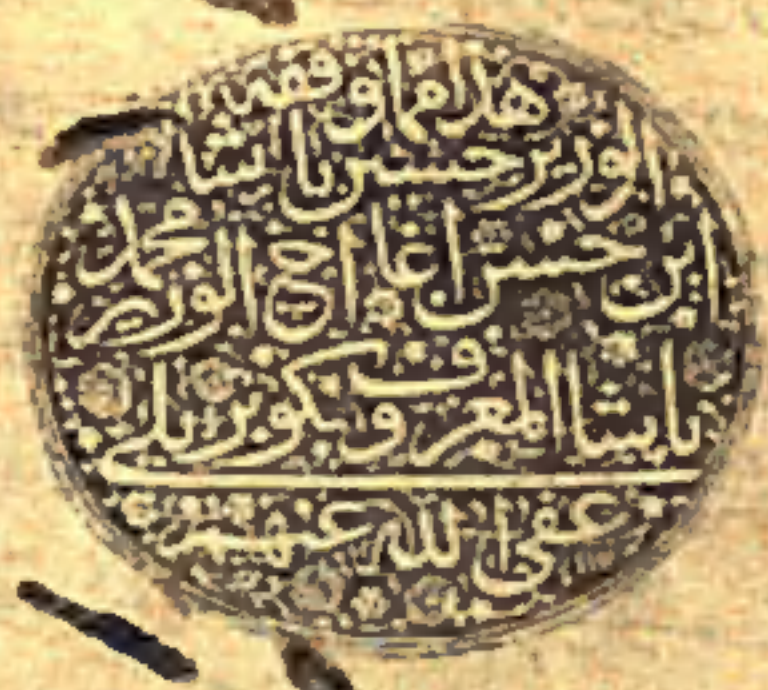 هذا مما وقفه
الوزير حسين باشا
ابن حسن اغا أخ الوزير محمد
باشا المعروف بكوبريلي
عفى الله عنهم